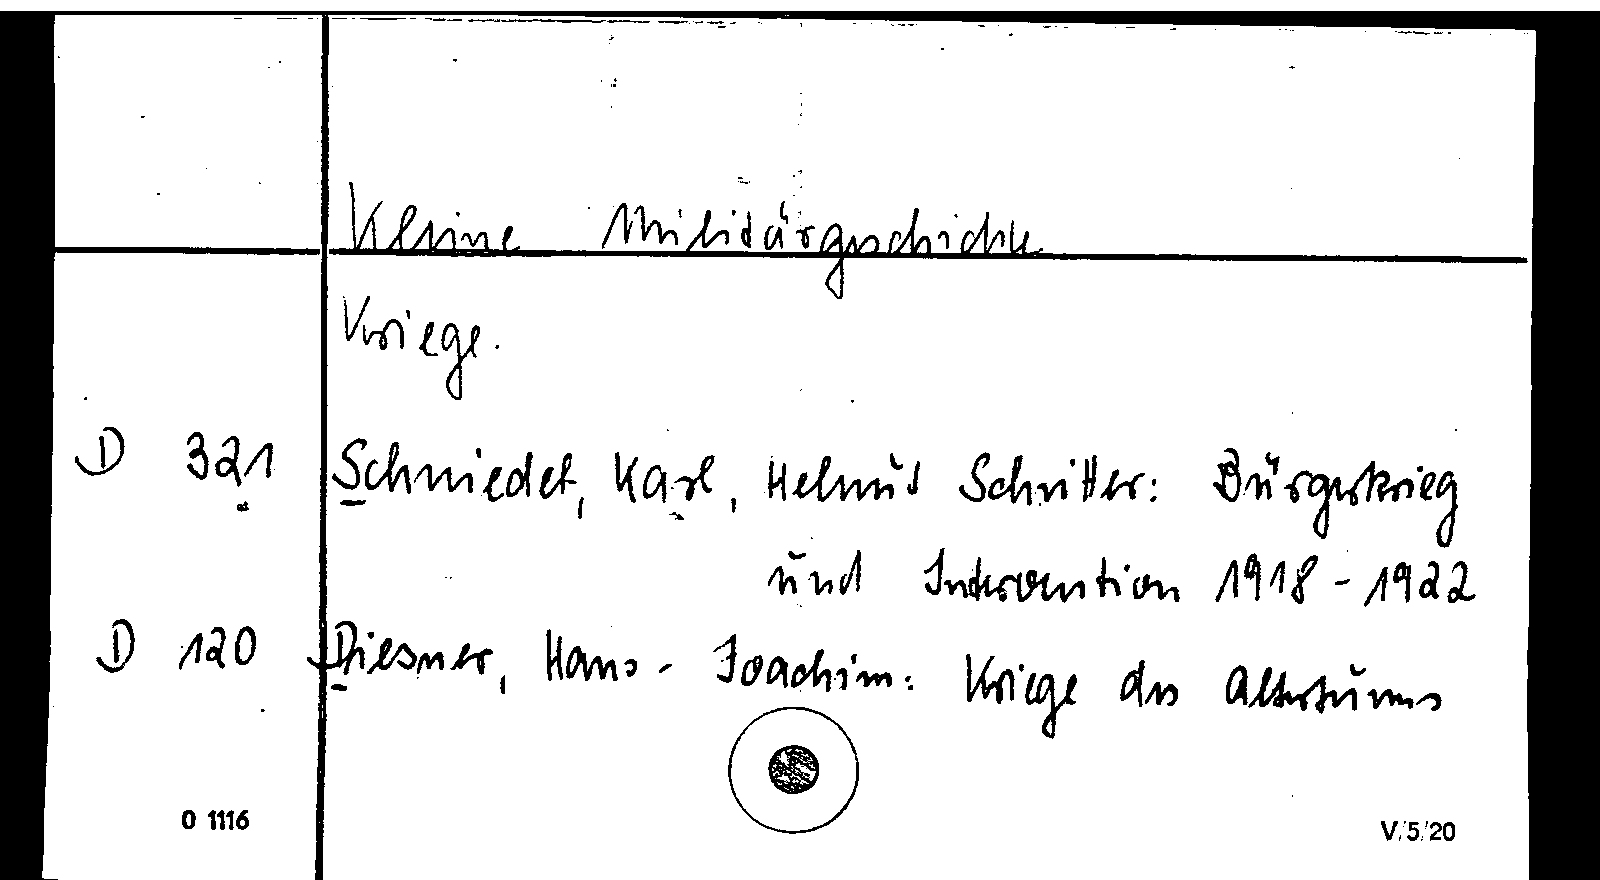 Kleine Militärgeschichte
Kriege.
D 321 Schmiedel, Karl, Helmut Schnitter: Bürgerkrieg
und Intervention 1918-1922
D 120 Diesner, Hans-Joachim: Kriege des Altertums
O 1116 V/5/20